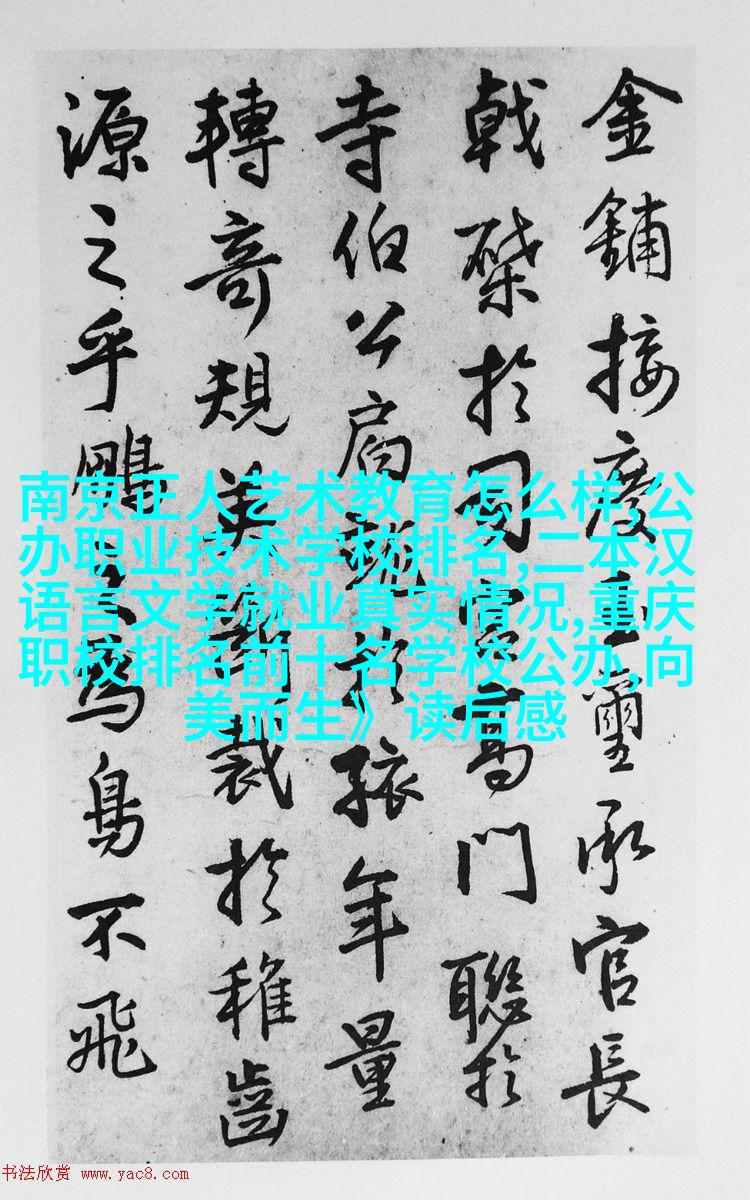 金鋪接慶玉璽承官長
戟於司高門聯於
寺伯公肩於孩年量
轉奇規美裁於稚齒
源之乎鵬鳥不飛
南京正人艺术教育怎么样,公
办职业技术学校排名,二本汉
语言文学就业真实情况,重庆
职校排名前十名学校公办,向
美而生》读后感
书法欣赏 www.yac8.com